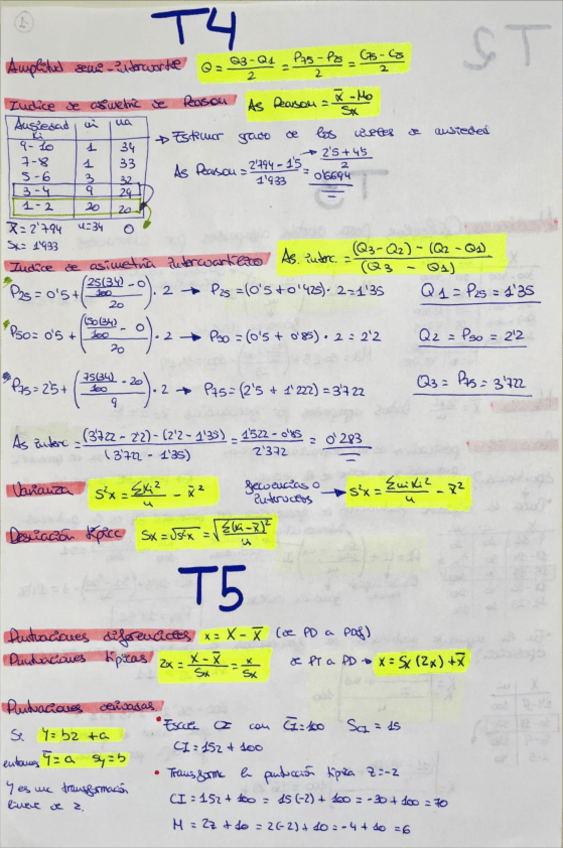 T4
Amplitud semi-intercuartil Q = Q3-Q1/2 = P75-P25/2 = C75-C25/2
Indice de asimetria de Pearson As Pearson = X̄-Mo/Sx
Ansiedad Xi ni na
9-10 1 34
7-8 1 33
5-6 3 32
3-4 9 29
1-2 20 20
0
→ Estimar grado de los niveles de ansiedad
As Pearson = 2'794-1'5/1'933 = 0'6694
→ 2'5+4'5/2
X̄ = 2'794 n=34
Sx = 1'933
Indice de asimetría intercuartílico As. interc. = (Q3-Q2)-(Q2-Q1)/(Q3-Q1)
P25 = 0'5 + (25(34)/100 - 0/20) · 2 → P25 = (0'5+0'425) · 2 = 1'35 Q1 = P25 = 1'35
P50 = 0'5 + (50(34)/100 - 0/20) · 2 → P50 = (0'5+0'85) · 2 = 2'2 Q2 = P50 = 2'2
P75 = 2'5 + (75(34)/100 - 20/9) · 2 → P75 = (2'5+1'222) = 3'722 Q3 = P75 = 3'722
As interc = (3'722-2'2)-(2'2-1'35)/(3'722-1'35) = 1'522-0'85/2'372 = 0'283
Varianza S²x = ΣXi²/n - X̄² frecuencias o intervalos → S²x = ΣniXi²/n - X̄²
Desviación típica Sx = √S²x = √Σ(Xi-X̄)²/n
T5
Puntuaciones diferenciales x = X - X̄ (de PD a PDif)
Puntuaciones típicas Zx = X-X̄/Sx = x/Sx de PT a PD → X = Sx (Zx) + X̄
Puntuaciones derivadas
Si Y = bz + a
entonces Ȳ = a Sy = b
Y es una transformación
lineal de z.
• Escala CI con C̄I = 100 SCI = 15
CI = 15z + 100
• Transforme la puntuación típica z = -2
CI = 15z + 100 = 15(-2) + 100 = -30 + 100 = 70
M = 2z + 10 = 2(-2) + 10 = -4 + 10 = 6